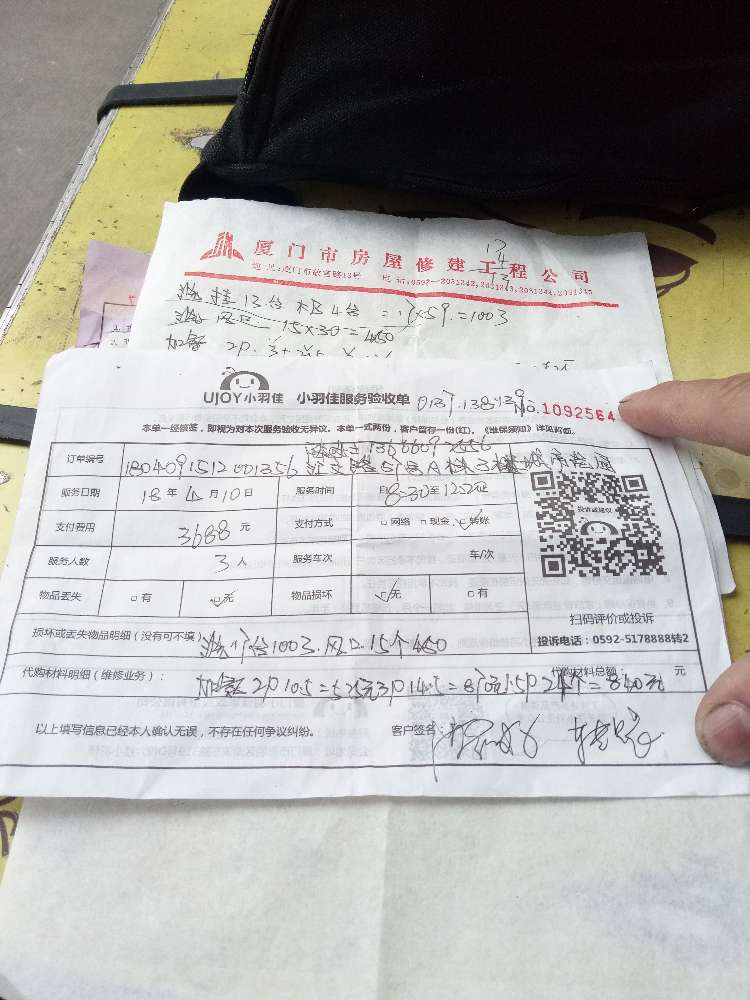 厦门市房屋修建工程公司
地址:厦门市故宫路13号 电话:0592—2031242,2031243,2031244,2031245
洗挂13台 柜4台 =17x59=1003
洗风口 15x30=450
加氨 2P.
UJOY小羽佳 小羽佳服务验收单 No.1092564
本单一经核签,即视为对本次服务验收无异议。本单一式两份,客户留存一份(红)。《维保须知》详见背面。
订单编号 1804091512001356
服务日期 18年4月10日 服务时间 自8:30至
支付费用 3688元 支付方式 □网络 □现金 ☑转账
服务人数 3人 服务车次 车/次
物品丢失 □有 ☑无 物品损坏 ☑无 □有
扫码评价或投诉
投诉电话:0592-5178888转2
损坏或丢失物品明细(没有可不填) 洗17台1003.风口15个450
代购材料明细(维修业务): 代购材料总额: 元
以上填写信息已经本人确认无误,不存在任何争议纠纷。 客户签名: